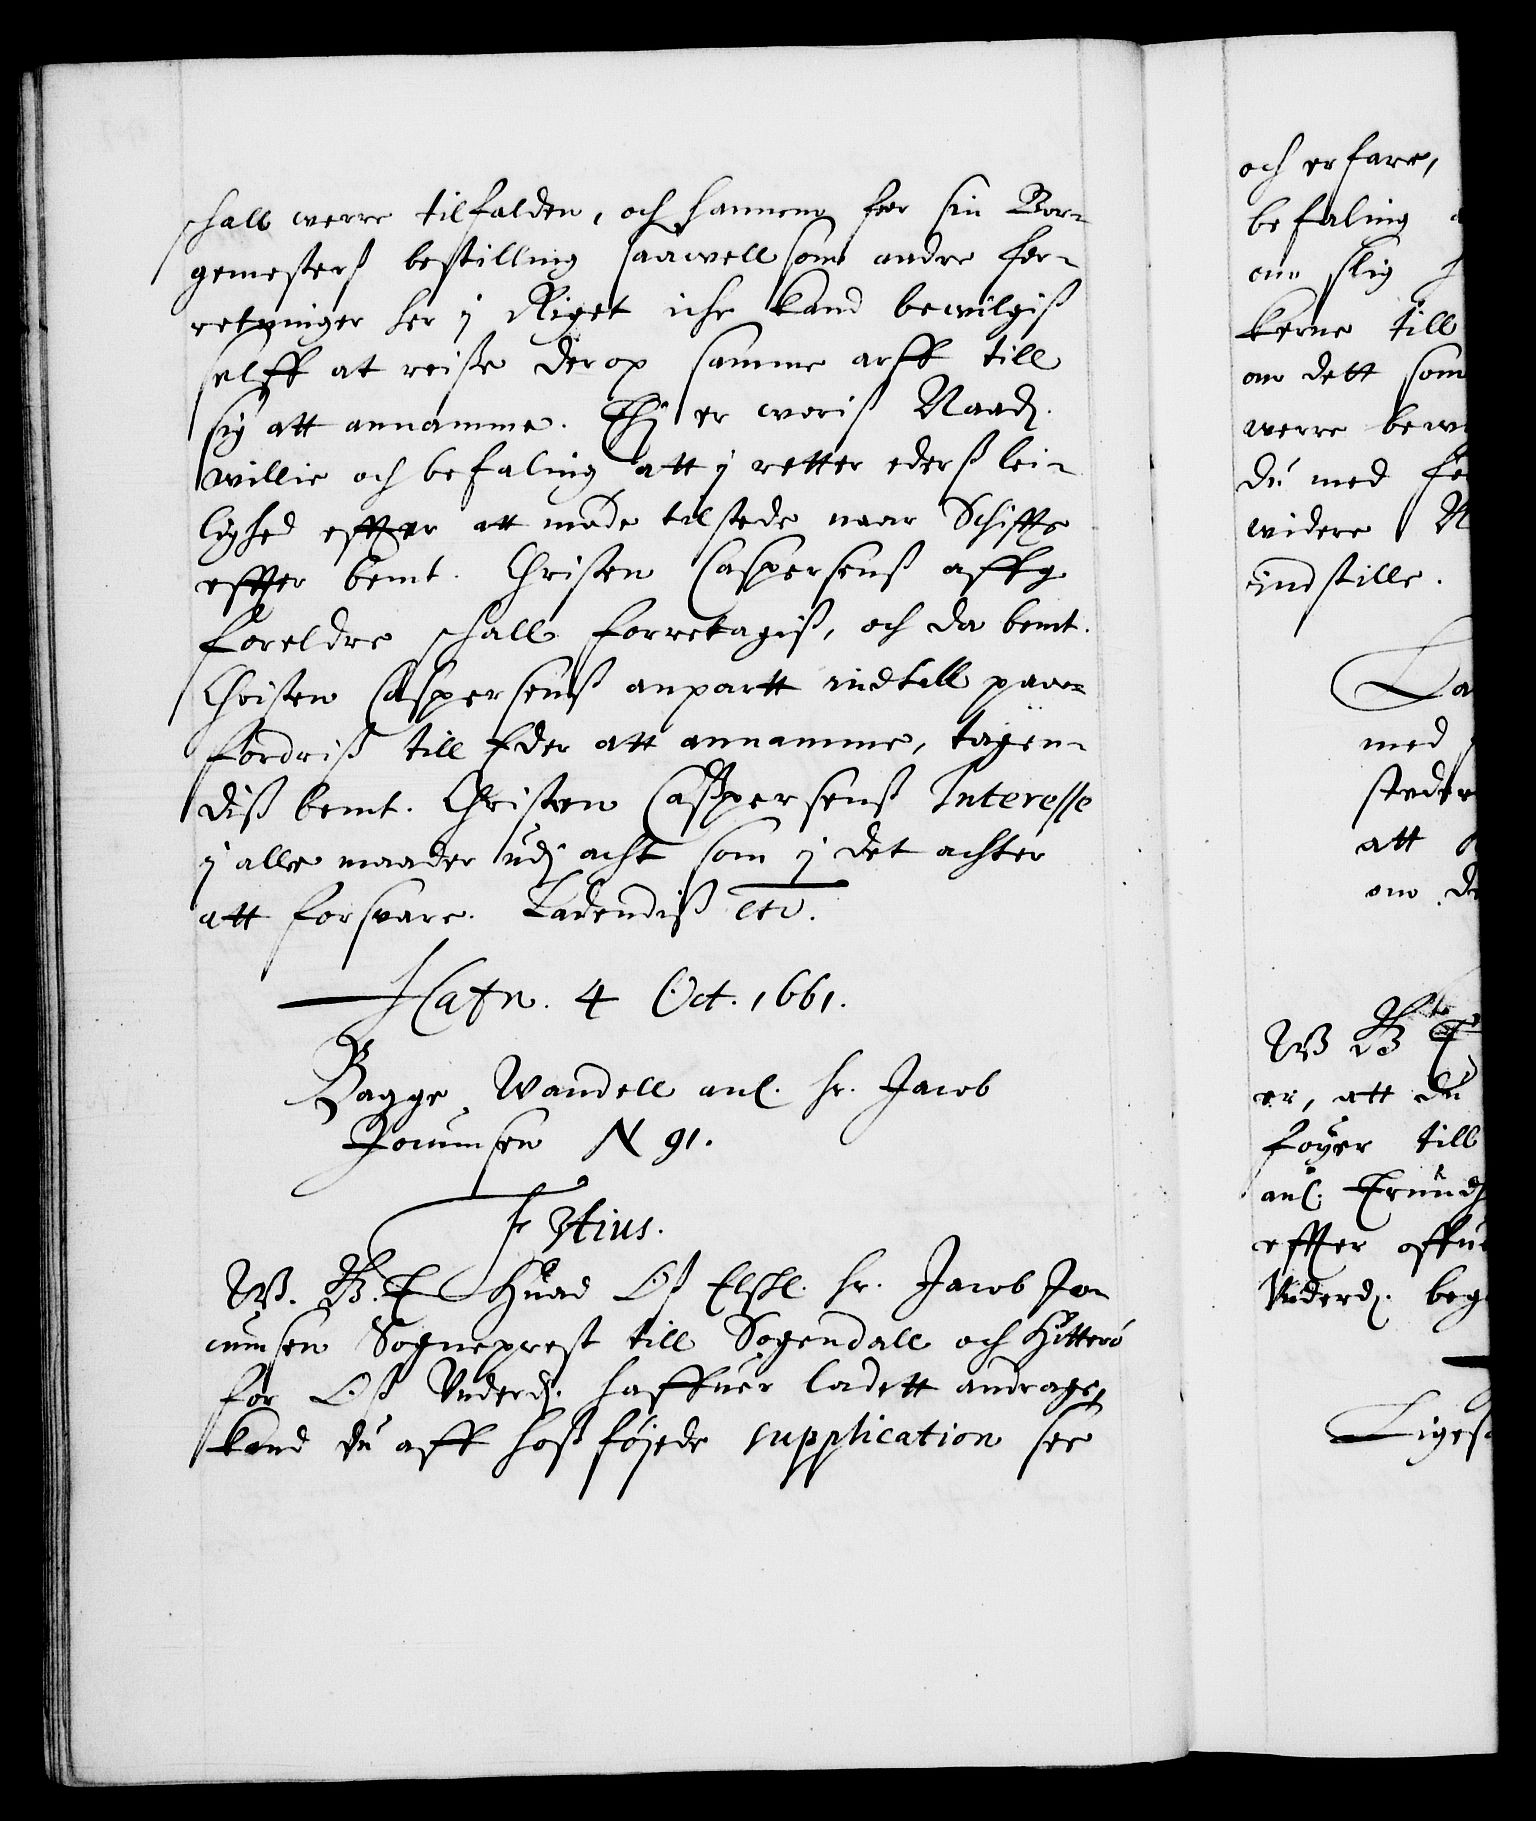 schall werre tilfalden, och hannem for sin Bor-
gemesters bestilling saawell som andre for-
retninger her j Riget iche kand bewilgis
self at reise derop samme arff till
sig att annamme. Thj er woris Naad.
willie och befaling att j retter eders lei-
lighed effter att møde tilstede naar Schiffte
effter bemt. Christen Caspersens affg
foreldre schall forretagis, och da bemt.
Christen Caspersens anpartt indtill paa-
fordris till Eder att annamme, tagen-
dis bemt. Christen Caspersens Interesse
j alle maader udj acht som j det achter
att forsvare. Ladendis etc.
Hafn. 4 Oct. 1661.
Bagge Wandell anl. hr. Jacob
Jocumsen N 91.
F 3tius.
W. G. T Huad Os Elskl. hr. Jacob Jo-
cumsen Sogneprest till Sogendall och Hitterö
for Os Underd. haffuer ladett andrage,
kand du aff hosföjede supplication see
och erfare,
befaling
om slig
kerne till
om dett som
werre bew
du med
widere
indstille.
La
med
steder
att
om de
W G T
er, att du
föyer till
anl.
effter
Underd. beg
Liges